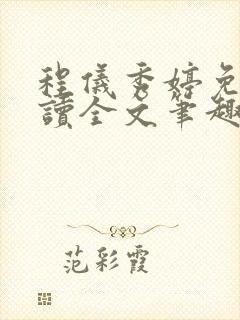 程儀秀婷免
讀全文筆趣
范彩霞